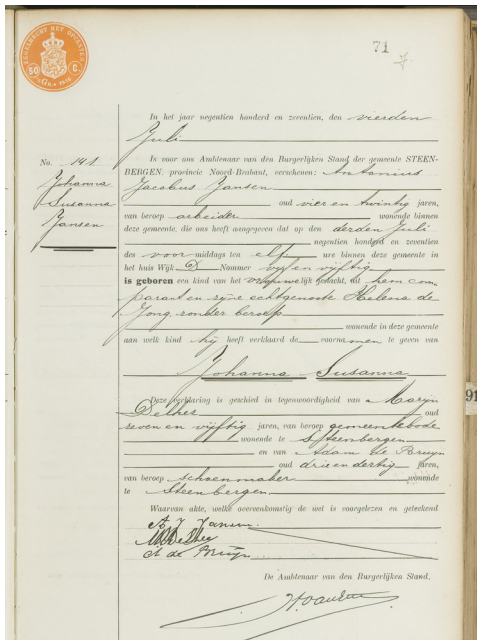 71
ZEGELRECHT MET OPCENTEN
50 C.
In het jaar negentien honderd en zeventien, den vierden
Juli
No. 141
Johanna
Susanna
Jansen
In voor ons Ambtenaar van den Burgerlijken Stand der gemeente STEEN-
BERGEN, provincie Noord-Brabant, verschenen: Antonius
Jacobus Jansen
oud vier en twintig jaren,
van beroep arbeider wonende binnen
deze gemeente, die ons heeft aangegeven dat op den derden Juli
negentien honderd en zeventien
des voor middags ten elf ure binnen deze gemeente in
het huis Wijk D Nummer vijf en vijftig
is geboren een kind van het vrouwelijk geslacht, uit hem com-
parant en zijne echtgenoote Helena de
Jong, zonder beroep
wonende in deze gemeente
aan welk kind hij heeft verklaard de voornamen te geven van
Johanna Susanna
Deze verklaring is geschied in tegenwoordigheid van Marijn
oud
zeven en vijftig jaren, van beroep gemeentebode
wonende te Steenbergen
en van Adam de Bruyn
oud drie en dertig jaren,
van beroep schoenmaker wonende
te Steenbergen
Waarvan akte, welke overeenkomstig de wet is voorgelezen en geteekend
A. J. Jansen.
A de Bruyn
De Ambtenaar van den Burgerlijken Stand,
91